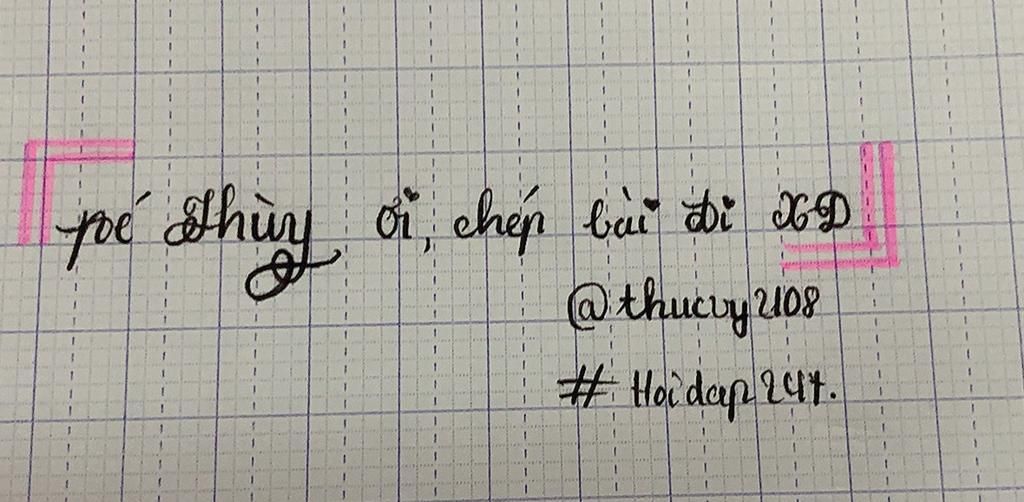 pé Thùy ơi, chép bài đi XD
@thucvy2108
# Hoidap247.